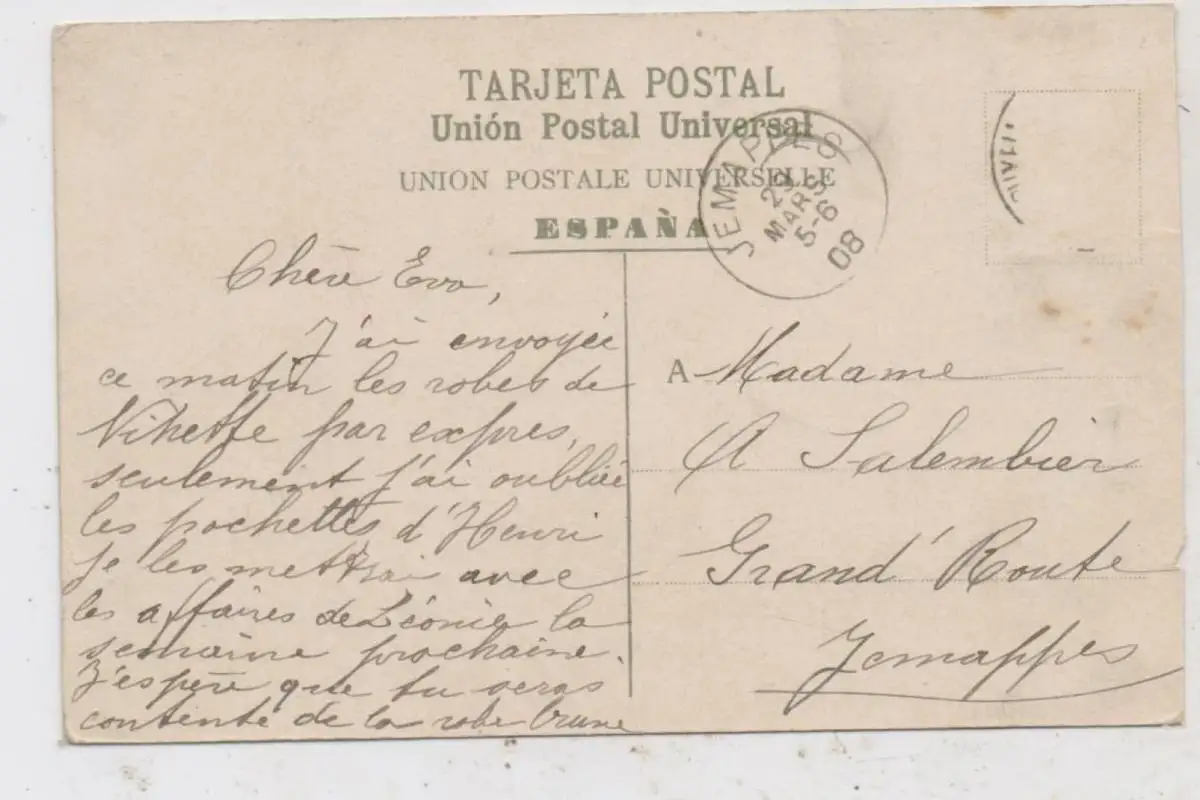 TARJETA POSTAL
Unión Postal Universal
UNION POSTALE UNIVERSELLE
ESPAÑA
JEMAPPES
29
MARS
5-6
08
Chère Eva,
J'ai envoyée
ce matin les robes de
par expres,
seulement j'ai oubliée
les pochettes d'Henri
je les mettrai avec
les affaires de Léonie la
semaine prochaine.
J'espère que tu seras
contente de la robe brune
A Madame
A Salembier
Grand' Route
Jemappes